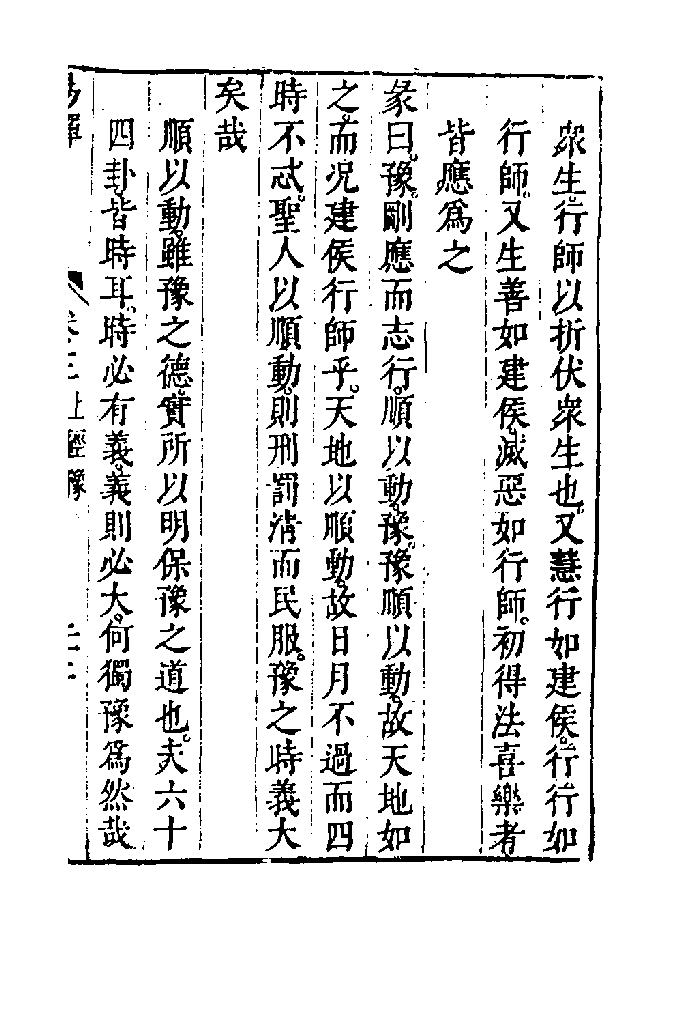 衆生。行師以折伏衆生也。又慧行如建侯。行行如
行師。又生善如建侯。滅惡如行師。初得法喜樂者
皆應爲之
彖曰。豫。剛應而志行。順以動。豫。豫順以動。故天地如
之。而況建侯行師乎。天地以順動。故日月不過而四
時不忒。聖人以順動。則刑罰清而民服。豫之時義大
矣哉
順以動。雖豫之德。實所以明保豫之道也。夫六十
四卦。皆時耳。時必有義。義則必大。何獨豫爲然哉
卷三上經豫